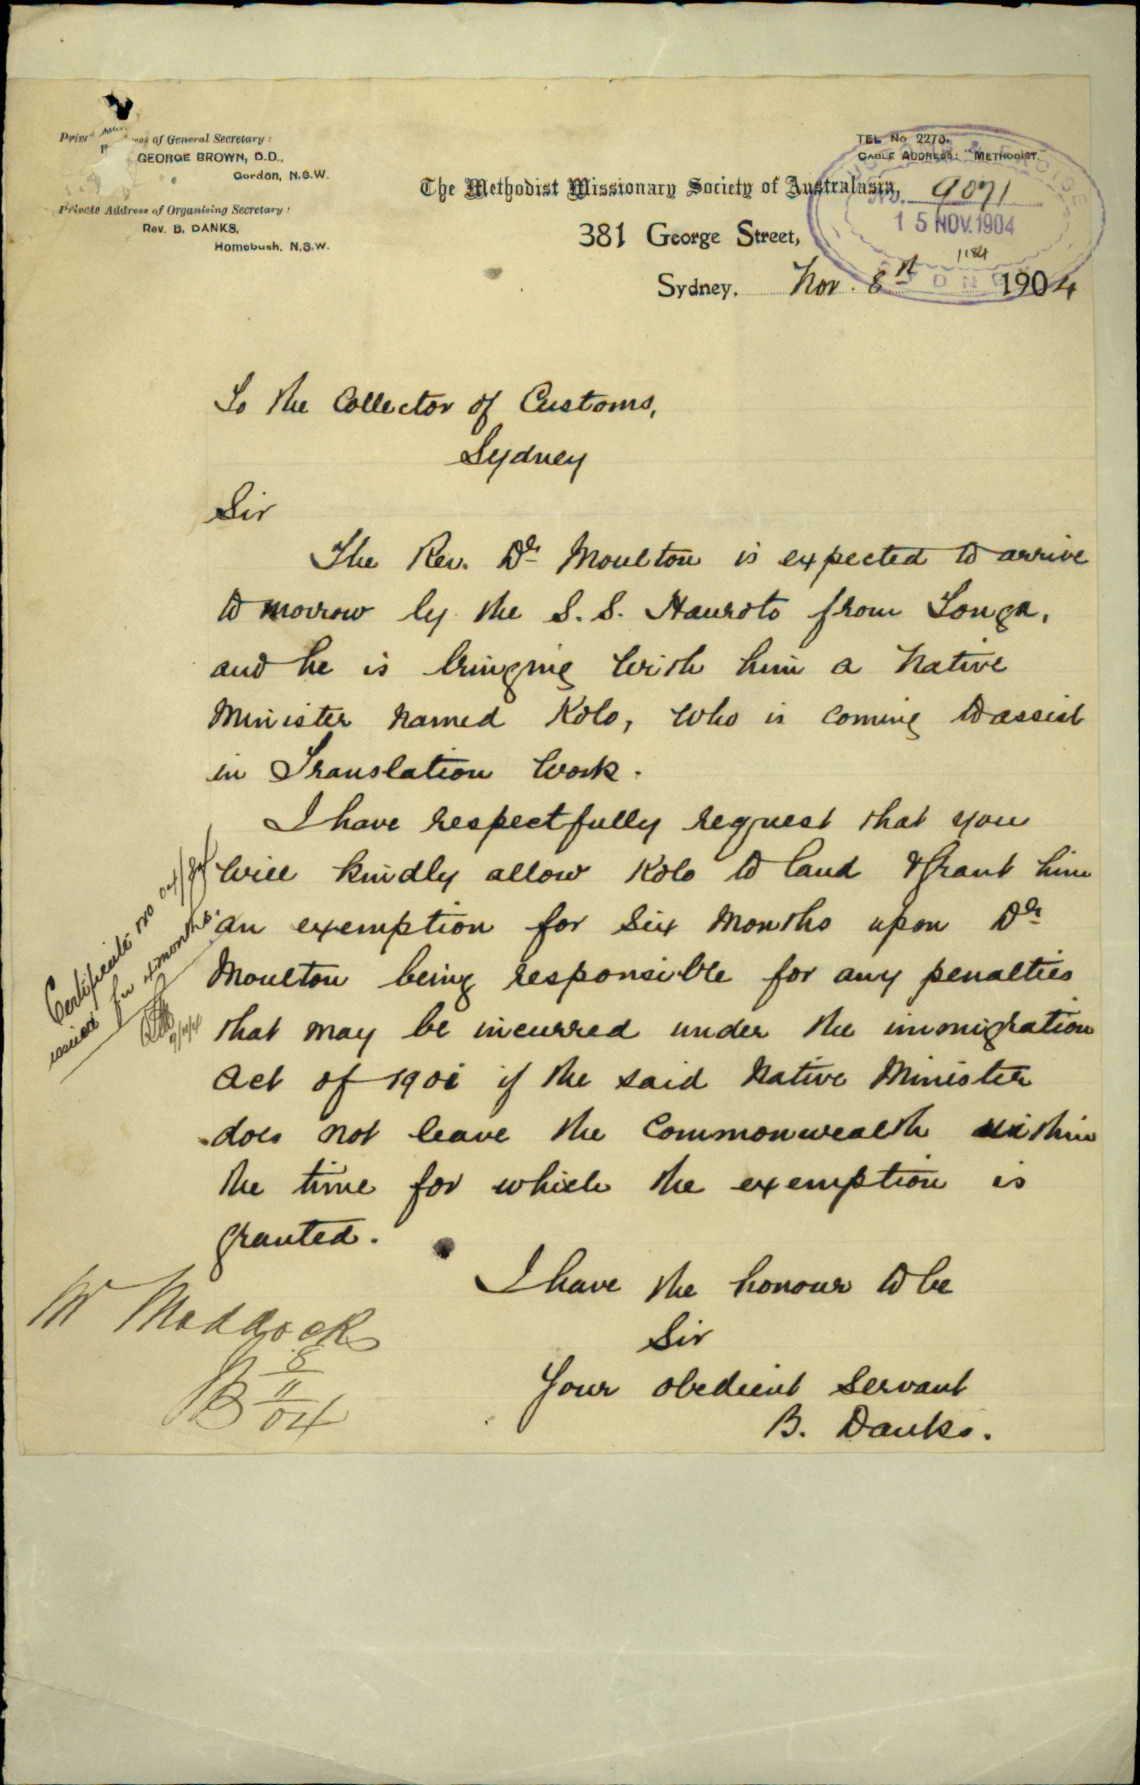 of General Secretary:
GEORGE BROWN, D.D.,
Gordon, N.S.W.
Private Address of Organising Secretary:
Rev. B. DANKS,
Homebush, N.S.W.
TEL No 2270.
CABLE ADDRESS: "METHODIST."
The Methodist Missionary Society of Australasia,
No. 9071
15 NOV. 1904
381 George Street,
1184
Sydney, Nov. 8th 1904
To the Collector of Customs,
Sydney
Sir
The Rev. Dr Moulton is expected to arrive
to morrow by the S.S. Hauroto from Tonga,
and he is bringing with him a Native
Minister named Kolo, who is coming to assist
in Translation Work.
I have respectfully request that you
will kindly allow Kolo to land & grant him
an exemption for six months upon Dr
Moulton being responsible for any penalties
that may be incurred under the immigration
Act of 1901 if the said Native Minister
does not leave the Commonwealth within
the time for which the exemption is
granted.
I have the honour to be
Sir
Your obedient servant
B. Danks.
Certificate No 04/
issued for 4 months.
9/11/04
Mr Maddock
8
11
04